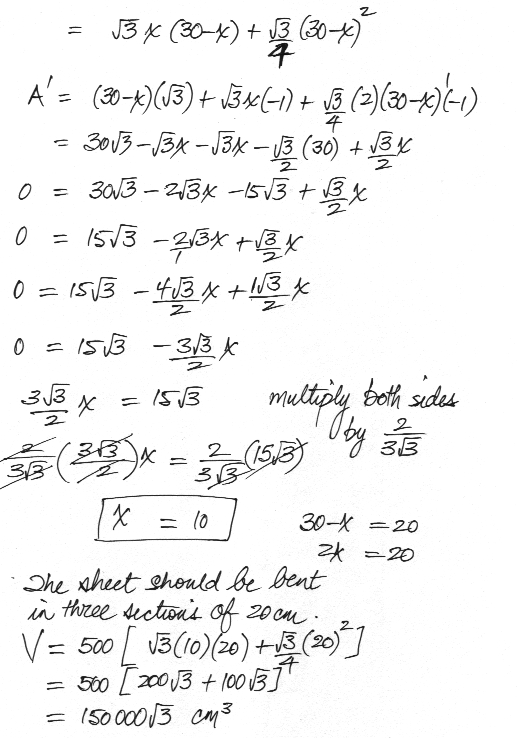 = √3 x (30-x) + √3/4 (30-x)²
A' = (30-x)(√3) + √3x(-1) + √3/4 (2)(30-x)¹(-1)
= 30√3 - √3x - √3x - √3/2 (30) + √3/2 x
0 = 30√3 - 2√3x - 15√3 + √3/2 x
0 = 15√3 - 2√3x/1 + √3/2 x
0 = 15√3 - 4√3/2 x + 1√3/2 x
0 = 15√3 - 3√3/2 x
3√3/2 x = 15√3 multiply both sides by 2/3√3
2/3√3 (3√3/2) x = 2/3√3 (15√3)
x = 10 30-x = 20
2x = 20
The sheet should be bent
in three sections of 20 cm.
V = 500 [ √3(10)(20) + √3/4 (20)² ]
= 500 [ 200√3 + 100√3 ]
= 150 000√3 cm³